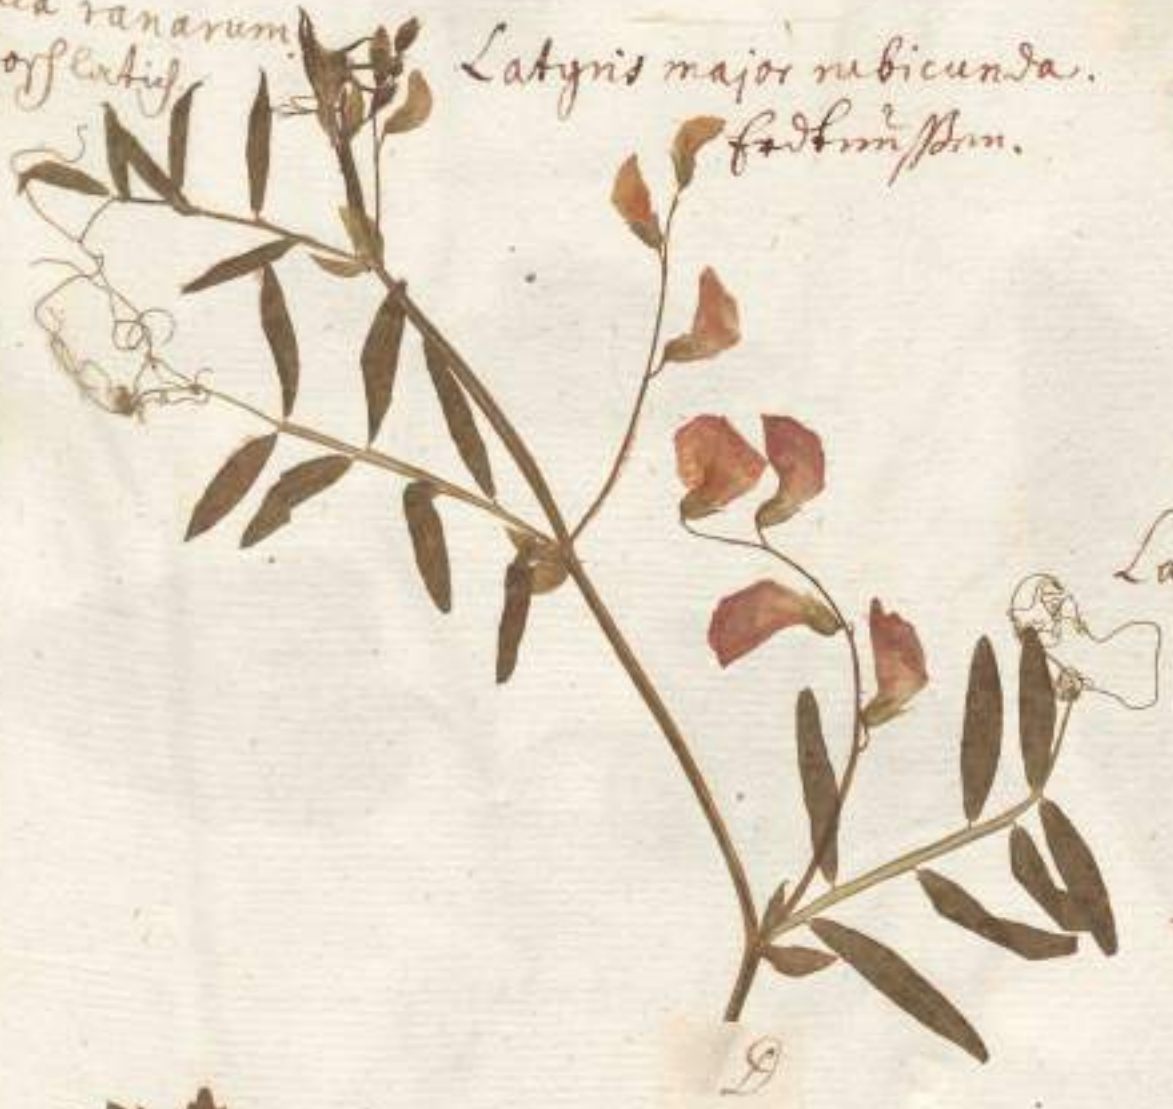 ranarum
Latyris major rubicunda.
Erdtnüssen.
La